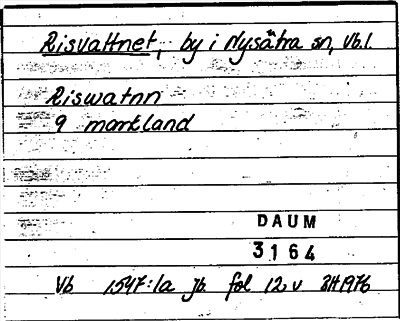 Risvattnet, by i Nysätra sn, Vb.l.
Riswatnn
9 markland
DAUM
3164
Vb 1547:1a jb. fol 12v BH1976